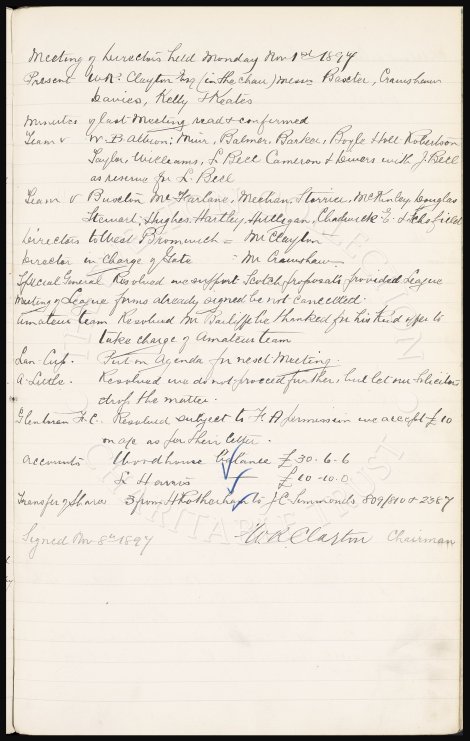 Meeting of Directors held Monday Nov 1st 1897
Present W.R. Clayton Esq (in the chair) Messrs Baxter, Crawshaw
Davies, Kelly & Keates
Minutes of last Meeting read & confirmed
Team v W. B. Albion; Muir, Balmer, Barker, Boyle Holt Robertson
Taylor, Williams, L Bell Cameron & Divers with J. Bell
as reserve for L. Bell
Team v Buxton McFarlane, Meehan, Storrier, McKinley, Douglas
Stewart, Hughes, Hartley, Hilligan, Chadwick E. & Schofield
Directors to West Bromwich = Mr Clayton
Director in Charge of Gate - Mr Crawshaw
Special General Resolved we support Scotch proposals provided League
Meeting of League forms already signed be not cancelled.
Amateur team Resolved Mr Bailiffe be thanked for his kind offer to
take charge of Amateur team
Lan. Cup. Put on Agenda for next Meeting.
A. Little. Resolved we do not proceed further, but let our Solicitors
drop the matter.
Glentman F.C. Resolved subject to F.A permission we accept £10
on a/c as per their letter.
Accounts Woodhouse balance £30-6-6
L Harris £10-10-0
Transfer of Shares 3 from H Rotherham to J C Simmonds 809/810 & 2387
Signed Nov 8th 1897 W.R. Clayton Chairman